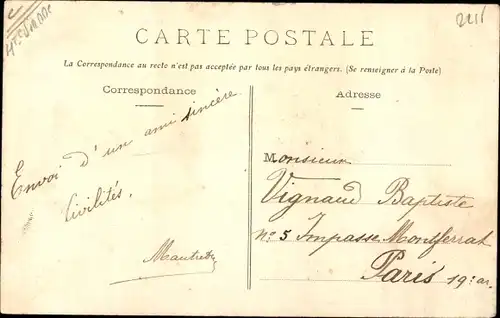 CARTE POSTALE
La Correspondance au recto n'est pas acceptée par tous les pays étrangers. (Se renseigner à la Poste)
Correspondance
Adresse
Envoi d'un ami sincère
Civilités,
Monsieur
Vignaud Baptiste
n° 5 Impasse Montferrat
Paris 19e ar.